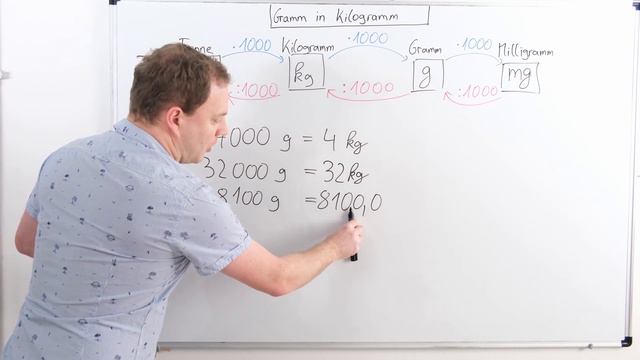 Gramm in Kilogramm
Tonne Kilogramm Gramm Milligramm
·1000 ·1000 ·1000
kg g mg
:1000 :1000 :1000
4000 g = 4 kg
32000 g = 32 kg
8100 g = 8100,0